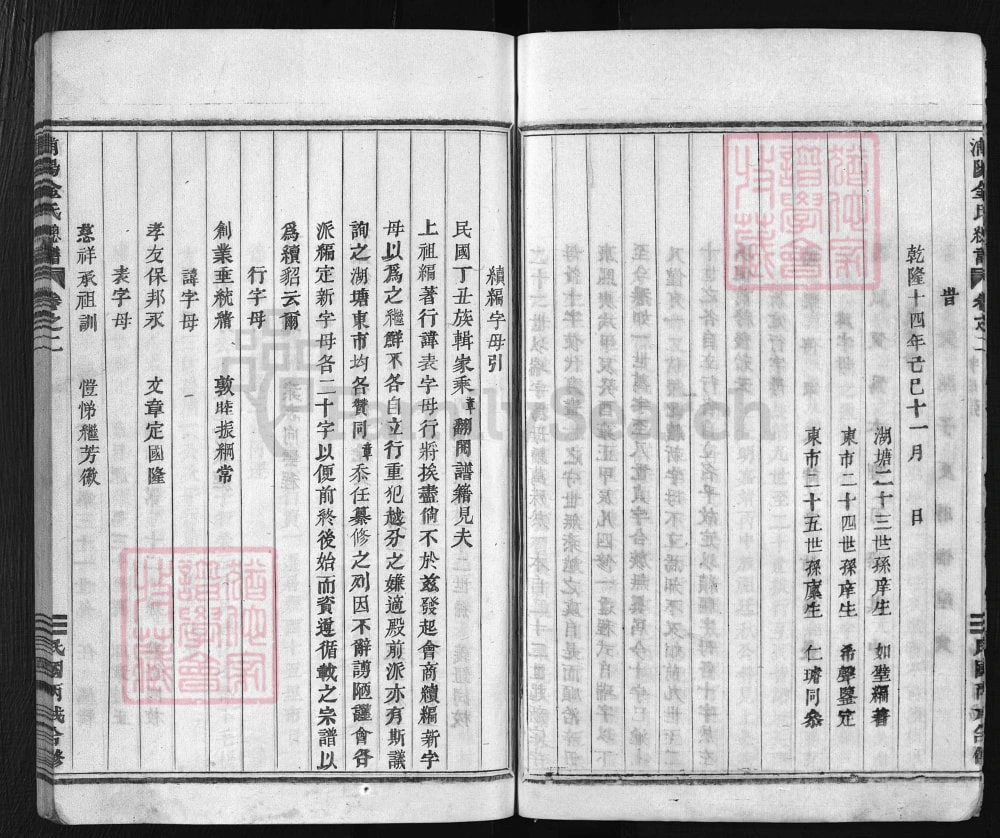 昔
乾隆十四年亡巳十一月　日
湖塘二十三世孫庠生　如璧編著
東市二十四世孫庠生　希聲鑒定
東市二十五世孫廩生　仁瑃同叅
續編字母引
民國丁丑族輯家乘章翻閱譜籍見夫
上祖編著行諱表字母行將挨盡倘不於兹發起會商續編新字
母以爲之繼鮮不各自立行重犯越分之嫌適殿前派亦有斯議
詢之湖塘東市均各贊同章忝任纂修之列因不辭謭陋謹會各
派編定新字母各二十字以便前終後始而資遵循載之宗譜以
爲續貂云爾
行字母
創業垂統緒　敦睦振綱常
諱字母
孝友保邦永　文章定國隆
表字母
慈祥承祖訓　愷悌繼芳徽
卷之二
民國丙戌合修
FamilySearch